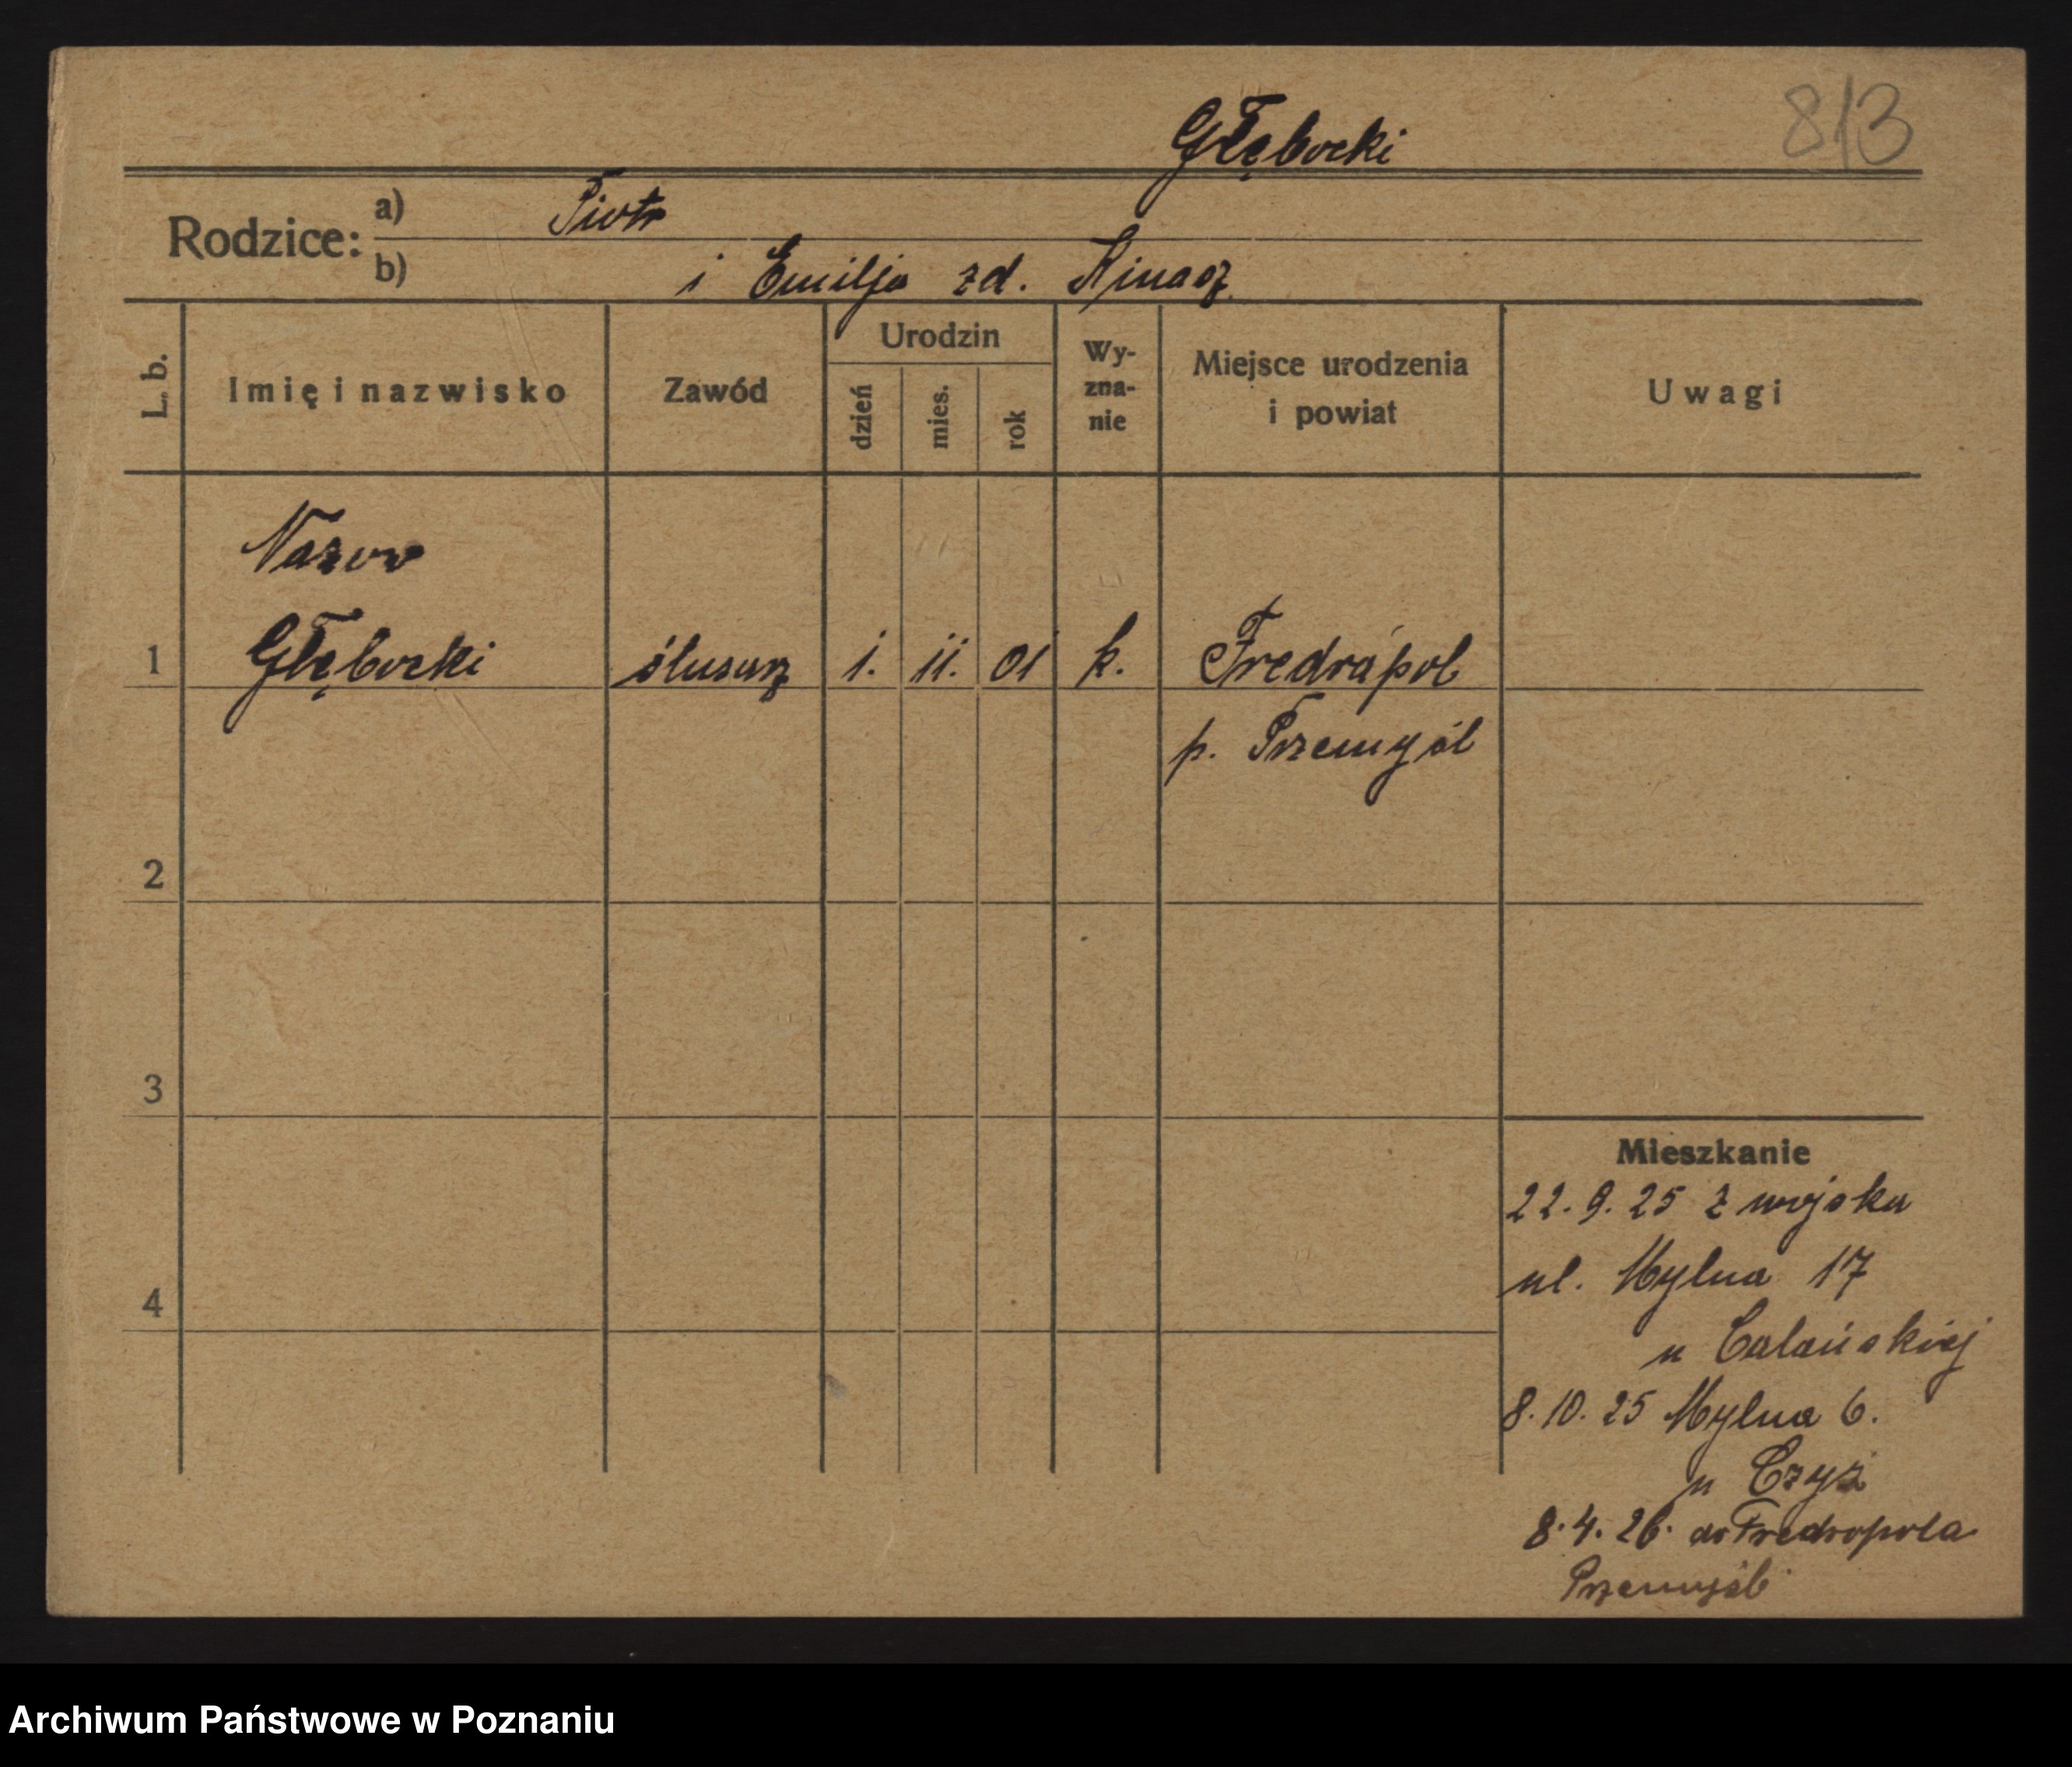 Głębocki 813
Rodzice:
a) Piotr
b) i Emilja zd. Kinasz
L. b. Imię i nazwisko Zawód Urodzin dzień mies. rok Wy-zna-nie Miejsce urodzenia i powiat Uwagi
Nazar
1 Głębocki ślusarz 1. 11. 01 k. Fredrapol
p. Przemyśl
2
3
Mieszkanie
22. 9. 25 z wojska
ul. Mylna 17
4
u Calańskiej
8. 10. 25 Mylna 6.
u Czyż
8. 4. 26. do Fredropola
Przemyśl
Archiwum Państwowe w Poznaniu